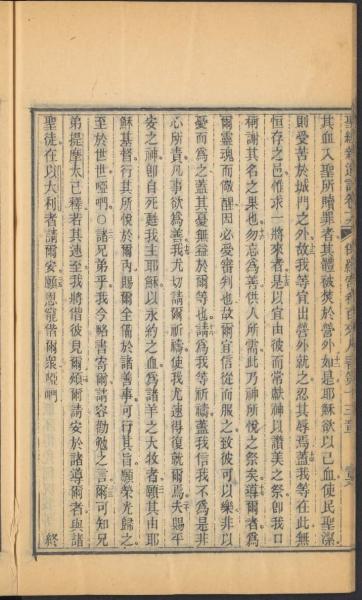 其血入聖所贖罪者其體被焚於營外如是耶穌欲以己血使民聖潔
則受苦於城門之外故我等宜出營外就之忍其辱焉蓋我等在此無
恒存之邑惟求一將來者是以宜由彼而常獻神以讚美之祭卽我口
稱謝其名之果也勿忘爲善供人所需此乃神所悅之祭矣導爾者爲
爾靈魂而儆醒因必愛審判也故爾宜信從而服之致彼可以樂非以
憂而爲之蓋其憂無益於爾等也請爲我等祈禱蓋我信我不爲是非
心所責凡事欲爲善我尤切請爾祈禱使我尤速得復就爾焉夫賜平
安之神卽自死甦我主耶穌以永約之血爲諸羊之大牧者願其由耶
穌基督行其所悅於爾內賜爾全備於諸善事可行其旨願榮光歸之
至於世世啞們○諸兄弟乎我今略書寄爾請容勸勉之言爾可知兄
弟提摩太已釋若其速至我將偕彼見爾煩爾請安於諸導爾者與諸
聖徒在以大利者請爾安願恩寵偕爾衆啞們
終